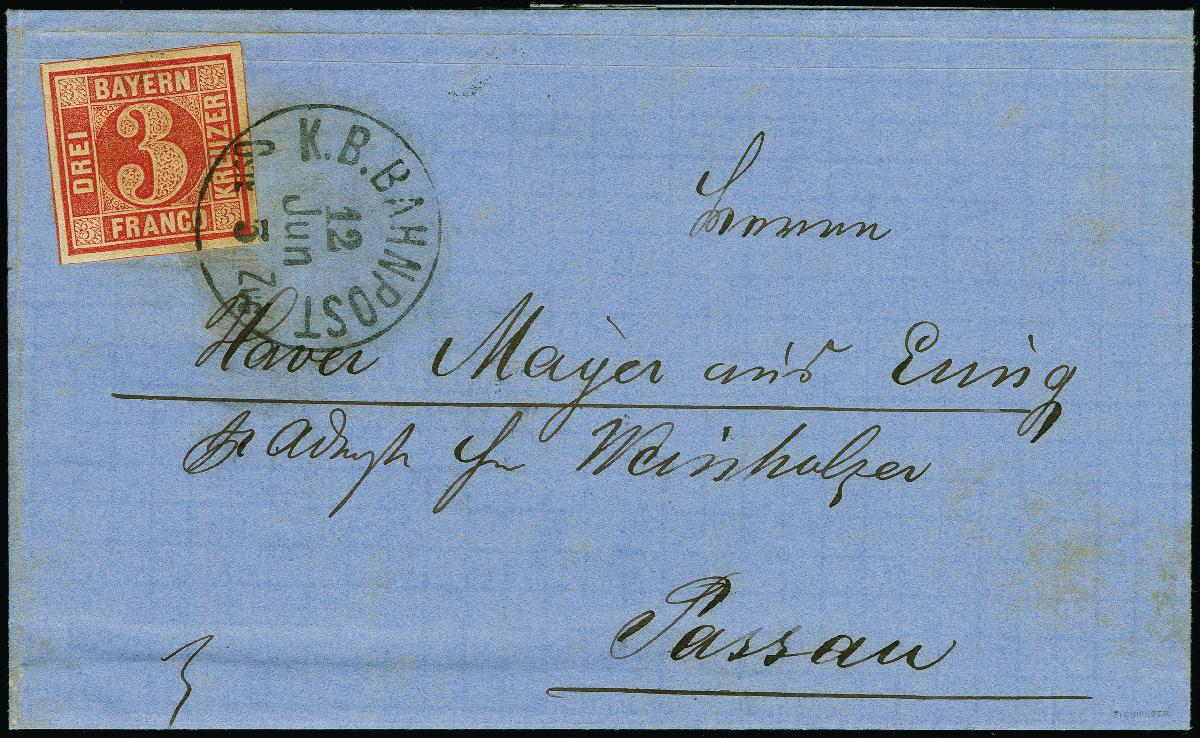 BAYERN
DREI
3
KREUZER
FRANCO
K.B.BAHNPOST
12
Jun
Herrn
Xaver Mayer aus Ering
pr Adresse Hn Weinholzer
Passau